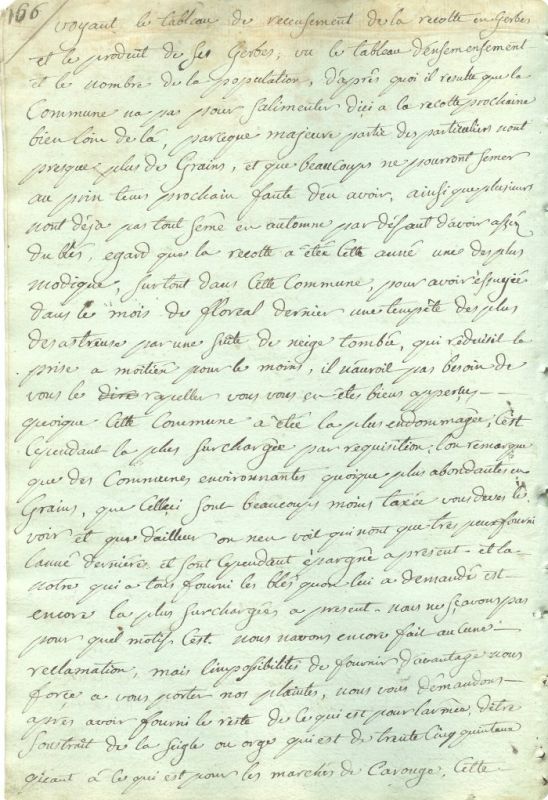 166
voyant le tableau de recensement de la recolte en Gerbes
et le produit de ses Gerbes, vu le tableau d'ensemensement
et le nombre de la population, d'après quoi il resulte que la
Commune na pas pour salimenter dici a la recolte prochaine
bien loin de là, parceque majeure partie des particuliers nont
presque plus de Grains, et que beaucoups ne pourront semer
au prin tems prochain faute d'en avoir, ainsi que plusieurs
nont déja pas tout semé en automne par défaut d'avoir assez
du bles, egard que la recolte a étée Cette année une des plus
modique, surtout dans Cette Commune, pour avoir essuyée
dans le mois de floreal dernier une tempête des plus
desastreuse par une suite de neige tombée, qui réduisil la
prise a moitien pour le moins, il n'auroit pas besoin de
vous le dire rapeller vous vous en êtes bien appertus
quoique Cette Commune a étée la plus endommagée, C'est
Cependant la plus surchargée par requisition, l'on remarque
que des Communes environnantes quoique plus abondantes en
Grains, que Celleci sont beaucoups moins taxée vous deves le
voir et que dailleur on neu voit qui nont que tres peu fourni
l'anné derniére et sont Cependant épargné apresent et la
notre qui a tous fourni les bles quon lui a demandé est
encore la plus surchargée a present nous ne sçavons pas
pour quel motif C'est nous navons encore fait aucune
reclamation, mais l'impossibilités de fournir d'avantage nous
force a vous porter nos plaintes, nous vous démandons
après avoir fourni le reste de Ce qui est pour larmée, d'être
soustrait de la seigle ou orge qui est de trente Cinq quintaux
quant à Ce qui est pour les marchés de Carouge, Cette